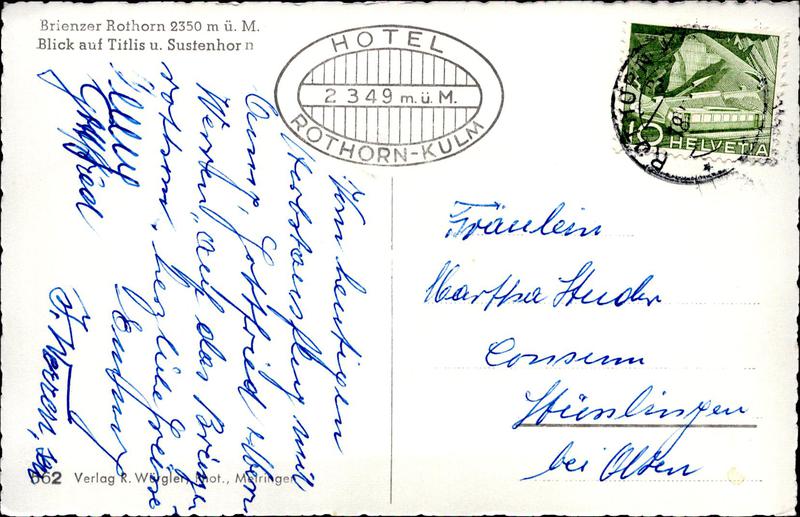 Brienzer Rothorn 2350 m ü. M.
Blick auf Titlis u. Sustenhorn
HOTEL
2349 m.ü.M.
ROTHORN-KULM
ROTHORN
10
HELVETIA
Vom heutigen
Herbstausflug mit
Gottfried
auf das Brienzer
rothorn, herzliche Grüsse
Gottfried
Fräulein
Martha Studer
Consum
Stüsslingen
bei Olten
662 Verlag R. Würgler, Phot., Meiringen